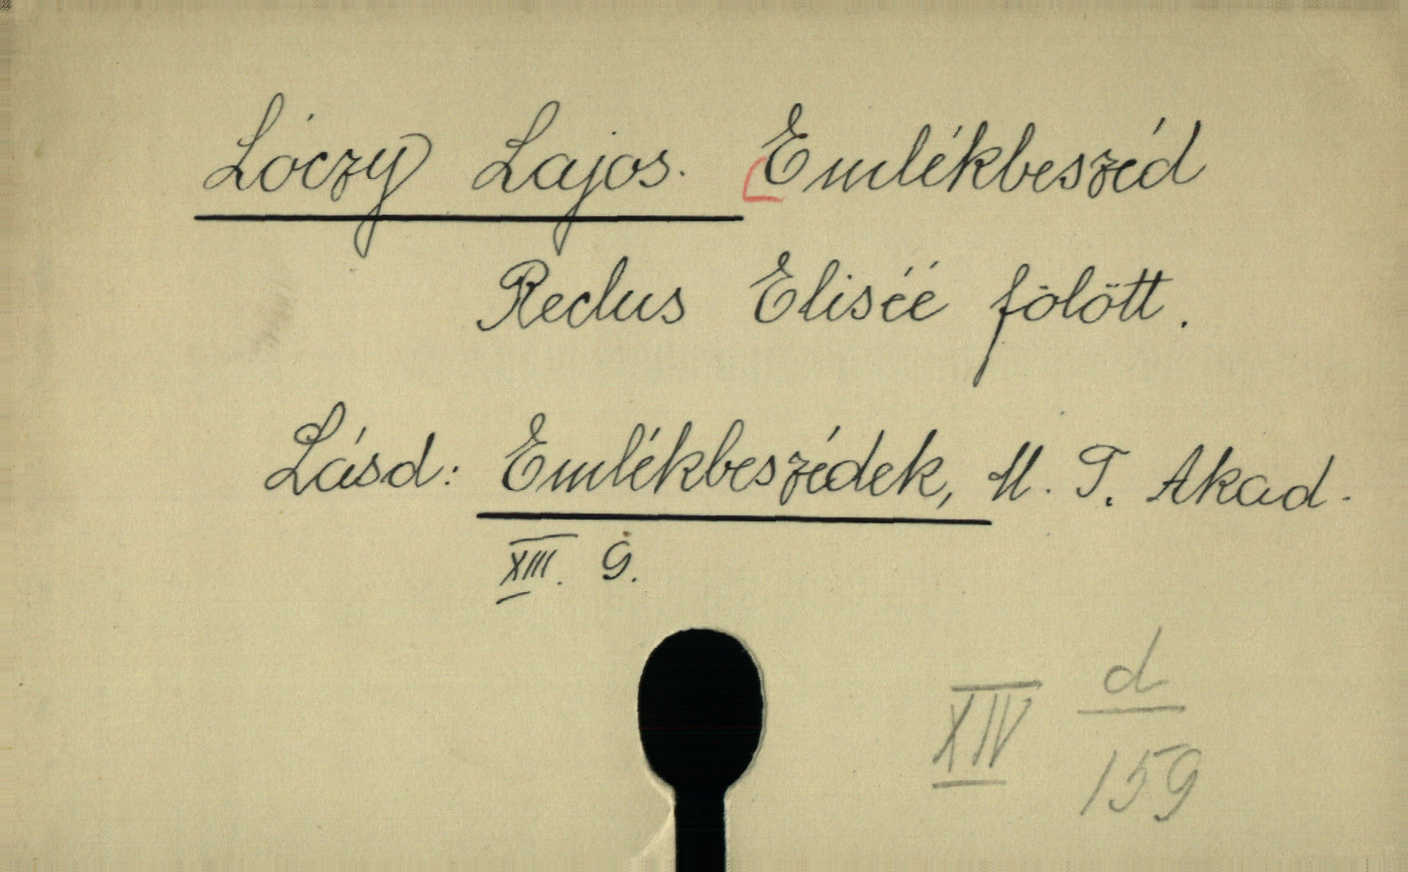 Lóczy Lajos. Emlékbeszéd
Reclus Eliséé fölött.
Lásd: Emlékbeszédek, M. T. Akad.
XIII. 9.
XIV d/159